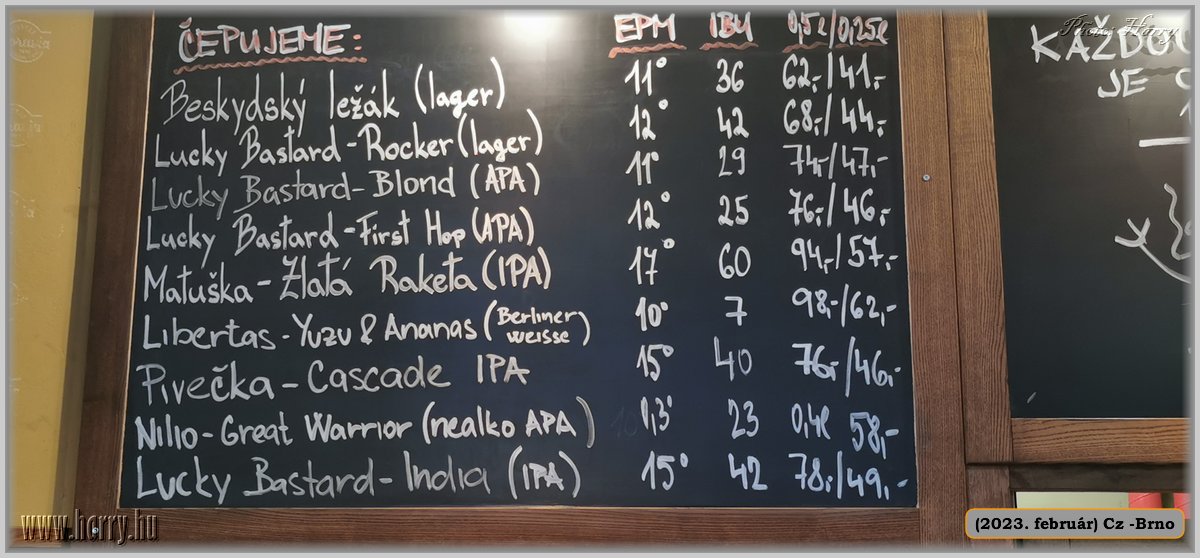 ČEPUJEME: EPM IBU 0,5l/0,25l
Beskydský ležák (lager) 11° 36 62,-/41,-
Lucky Bastard-Rocker (lager) 12° 42 68,-/44,-
Lucky Bastard-Blond (APA) 11° 29 74,-/47,-
Lucky Bastard-First Hop (APA) 12° 25 76,-/46,-
Matuška-Zlatá Raketa (IPA) 17° 60 94,-/57,-
Libertas-Yuzu & Ananas (Berliner weisse) 10° 7 98,-/62,-
Pivečka-Cascade IPA 15° 40 76,-/46,-
Nilio-Great Warrior (nealko APA) 0,3° 23 0,4l 58,-
Lucky Bastard-India (IPA) 15° 42 78,-/49,-
Photo: Horry
KAŽDOU
JE
www.horry.hu
(2023. február) Cz -Brno